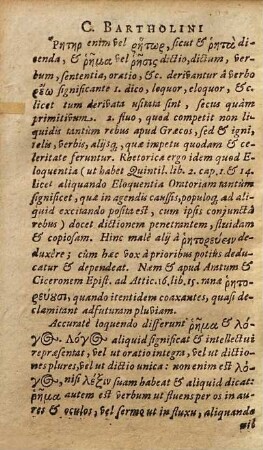 C. BARTHOLINI
Ρητηρ enim vel ῥήτωρ, sicut & ῥητὰ di-
cenda, & ῥῆμα vel ῥῆσις dictio, dictum, ver-
bum, sententia, oratio, & c. derivantur à verbo
ῥέω significante 1. dico, loquor, eloquor, & c.
licet tum derivata usitata sint, secus quàm
primitivum. 2. fluo, quod competit non li-
quidis tantùm rebus apud Græcos, sed & igni,
telis, verbis, alijsq, quæ impetu quodam & ce-
leritate feruntur. Rhetorica ergo idem quod E-
loquentia (ut habet Quintil. lib. 2. cap. 1 & 14.
licet aliquando Eloquentia Oratoriam tantùm
significet, quæ in agendis caussis, populoq, ad ali-
quid excitando posita est, cum ipsis conjunctâ
rebus) docet dictionem penetrantem, fluidam
& copiosam. Hinc male alij à ῥητορεύειν de-
duxêre; cùm hæc vox à prioribus potiùs dedu-
catur & dependeat. Nam & apud Anatum &
Ciceronem Epist. ad Attic. 16. lib. 15. ranæ ῥητο-
ρεύουσι, quando itentidem coaxantes, quasi de-
clamitant adfuturam pluviam.
Accuratè loquendo differunt ῥῆμα & λό-
γος. Λόγος aliquid significat & intellectui
repræsentat, vel ut oratio integra, vel ut dictio-
nes plures, vel ut dictio unica: non enim est λό-
γος, nisi λέξιν suam habeat & aliquid dicat:
ῥῆμα autem est verbum ut fluens per os in au-
res & oculos, vel sermo ut in fluxu, aliquando
nil